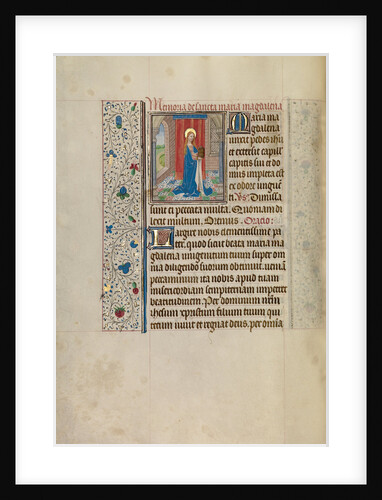 Memoria de sancta maria magdalena
Maria ma
gdalena
unxit pedes ihu
et extersit capill
capitis sui et do
mus impleta est
ex odore unguen
ti. Vs. Dimissa
sunt ei peccata multa. Quoniam di
lexit multum. Oremus. Oratio:
Largire nobis clementissime pa
ter, quod sicut beata maria ma
gdalena unigenitum tuum super om
nia diligendo suorum obtinuit veniā
peccaminum ita nobis apud tuam
misericordiam sempiternam impetret
beatitudinem. Per dominum nrm
ihesum xpristum filium tuum qui
tecum vivit et regnat deus. per omia